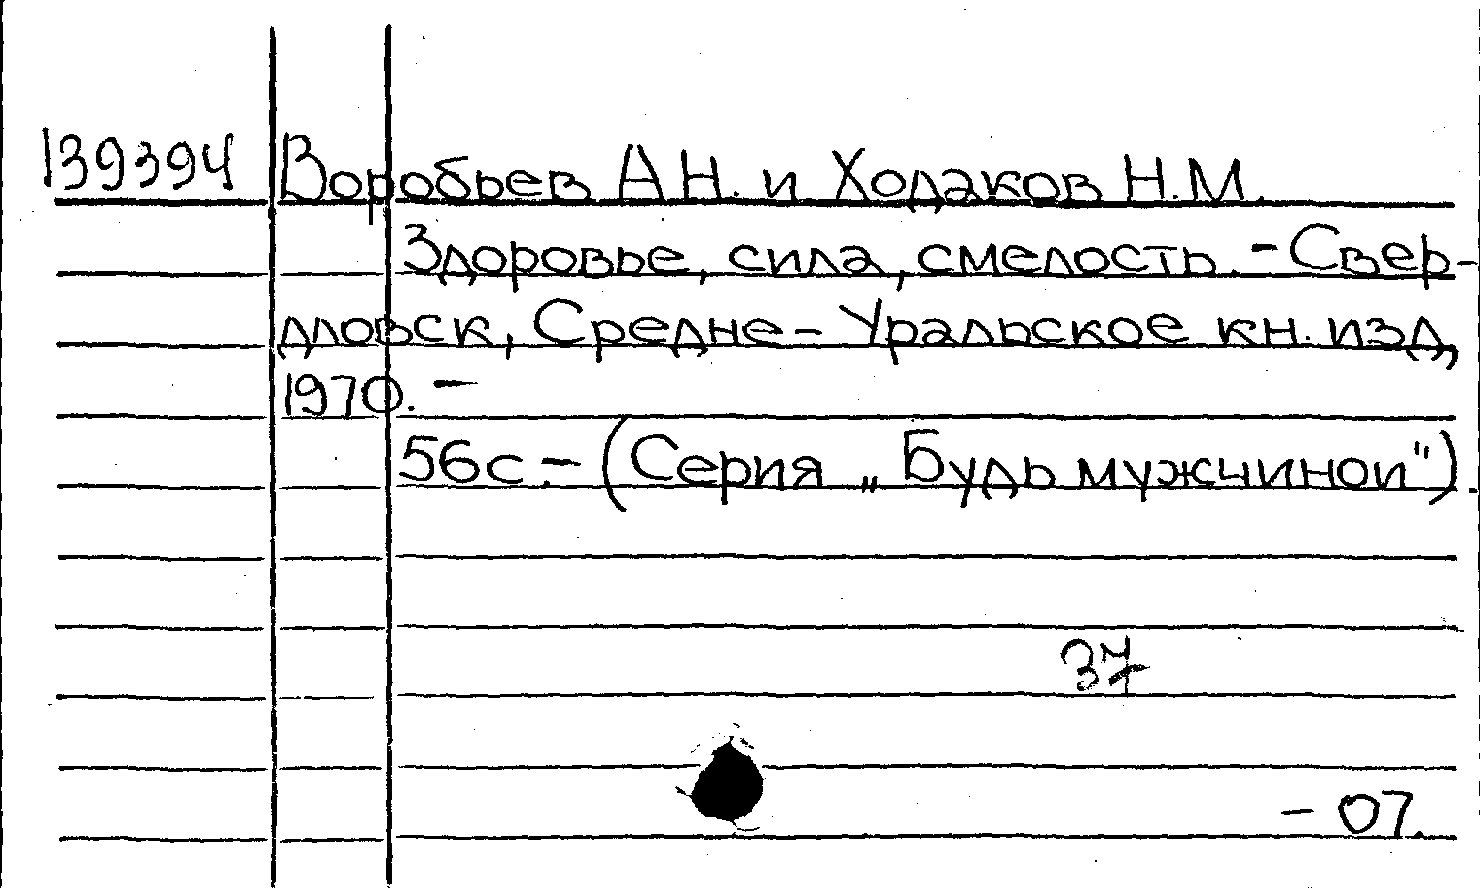 139394 Воробьев А.Н. и Ходаков Н.М.
Здоровье, сила, смелость. - Свер-
дловск, Средне - Уральское кн. изд,
1970. -
56с. - (Серия „Будь мужчиной").
37
- 07.